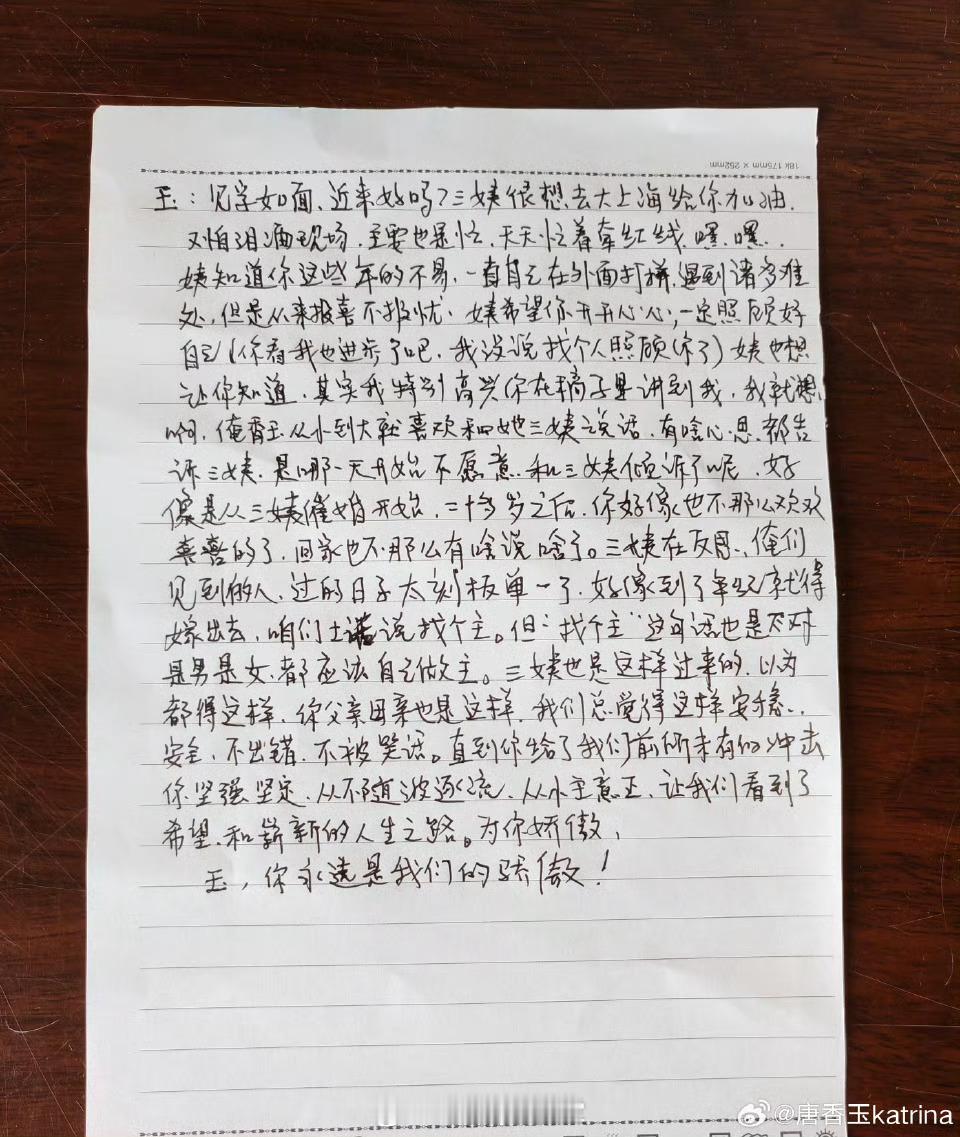 18k 175mm × 252mm
玉：见字如面、近来好吗？三姨很想去大上海给你加油.
又怕泪洒现场.主要也是忙、天天忙着牵红线.嘿.嘿..
姨知道你这些年的不易.一直自己在外面打拼.遇到诸多难
处,但是从来报喜不报忧.姨希望你开开心心,一定照顾好
自己(你看我也进步了吧.我没说找个人照顾你了)姨也想
让你知道,其实我特别高兴你在稿子里讲到我,我就想.
啊,俺香玉从小到大就喜欢和她三姨说话,有啥心思都告
诉三姨.是哪一天开始不愿意.和三姨倾诉了呢.好
像是从三姨催婚开始,二十多岁之后,你好像也不那么欢欢
喜喜的了,回家也不那么有啥说啥了。三姨在反思、俺们
见到的人、过的日子太刻板单一了.好像到了年纪就得
嫁出去,咱们土话说找个主。但“找个主”这句话也是不对
是男是女.都应该自己做主。三姨也是这样过来的.以为
都得这样.你父亲母亲也是这样.我们总觉得这样安稳..
安全,不出错.不被笑话。直到你给了我们前所未有的冲击
你坚强坚定.从不随波逐流.从小主意正.让我们看到了
希望.和崭新的人生之路。为你骄傲,
玉,你永远是我们的骄傲！
@唐香玉katrina